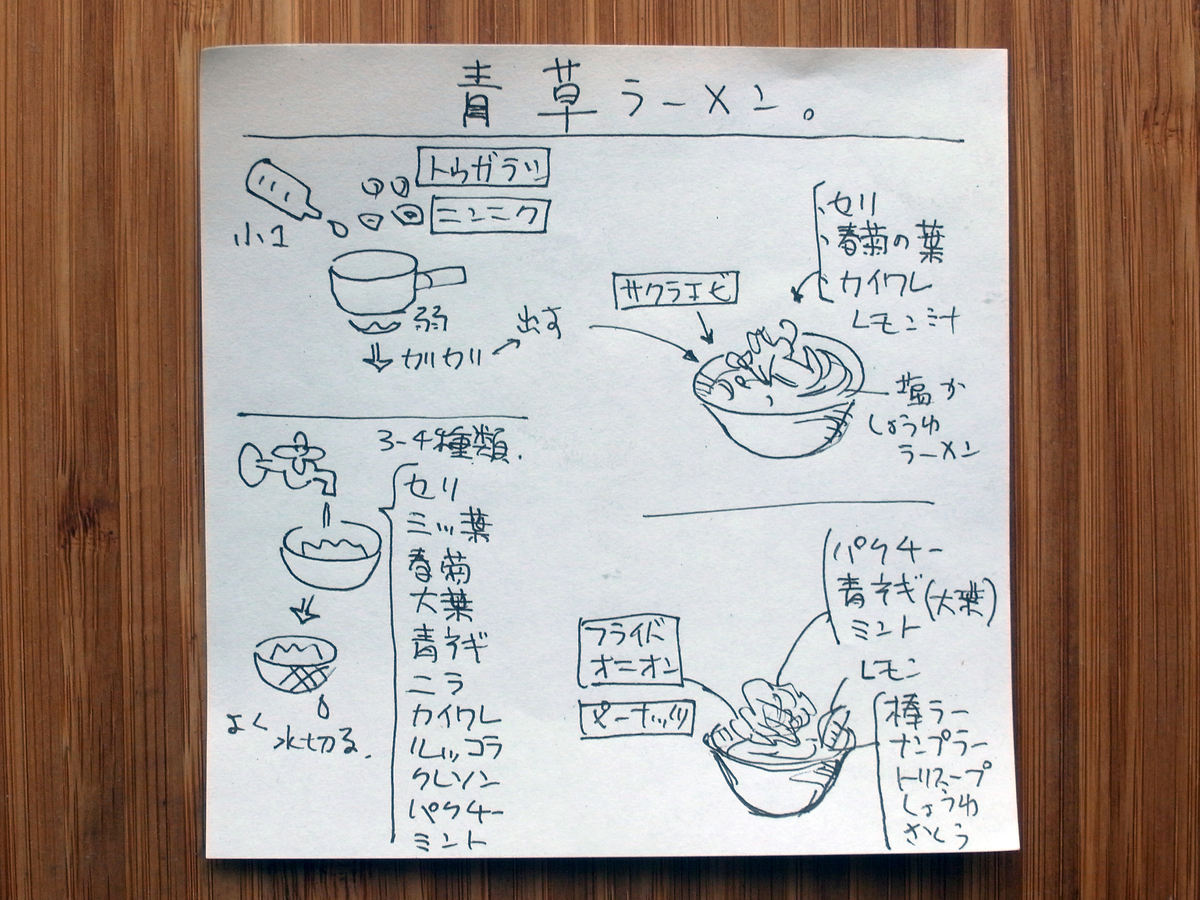 青草ラーメン。
トウガラシ
ニンニク
小1
弱
カリカリ
出す
セリ
春菊の葉
カイワレ
レモン汁
サクラエビ
塩か
しょうゆ
ラーメン
3-4種類.
セリ
ミツ葉
春菊
大葉
青ネギ
ニラ
カイワレ
ルッコラ
クレソン
パクチー
ミント
よく水切る.
パクチー
青ネギ(大葉)
ミント
フライド
オニオン
ピーナッツ
レモン
棒ラー
ナンプラー
トリスープ
しょうゆ
さとう